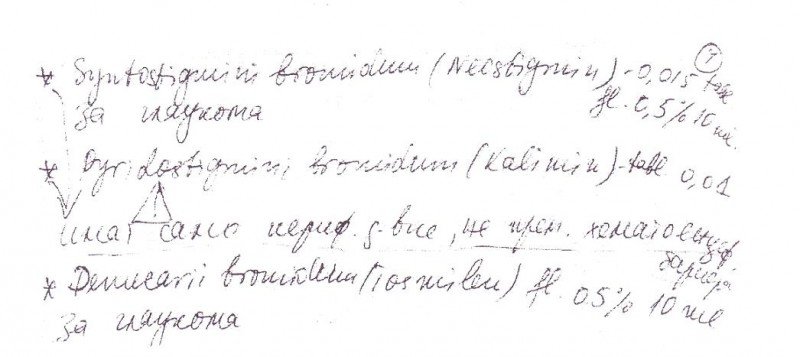 * Syntostigmini bromidum (Neostigmin) - 0,015 tabl
за глаукома fl. 0,5% 10 ml.
* Pyridostigmini bromidum (Kalimin) - tabl 0,01
имат само периф. д-вие, не прем. хематоенцеф
бариера
* Demecarii bromidum (Tosmilen) fl. 05% 10 ml
за глаукома